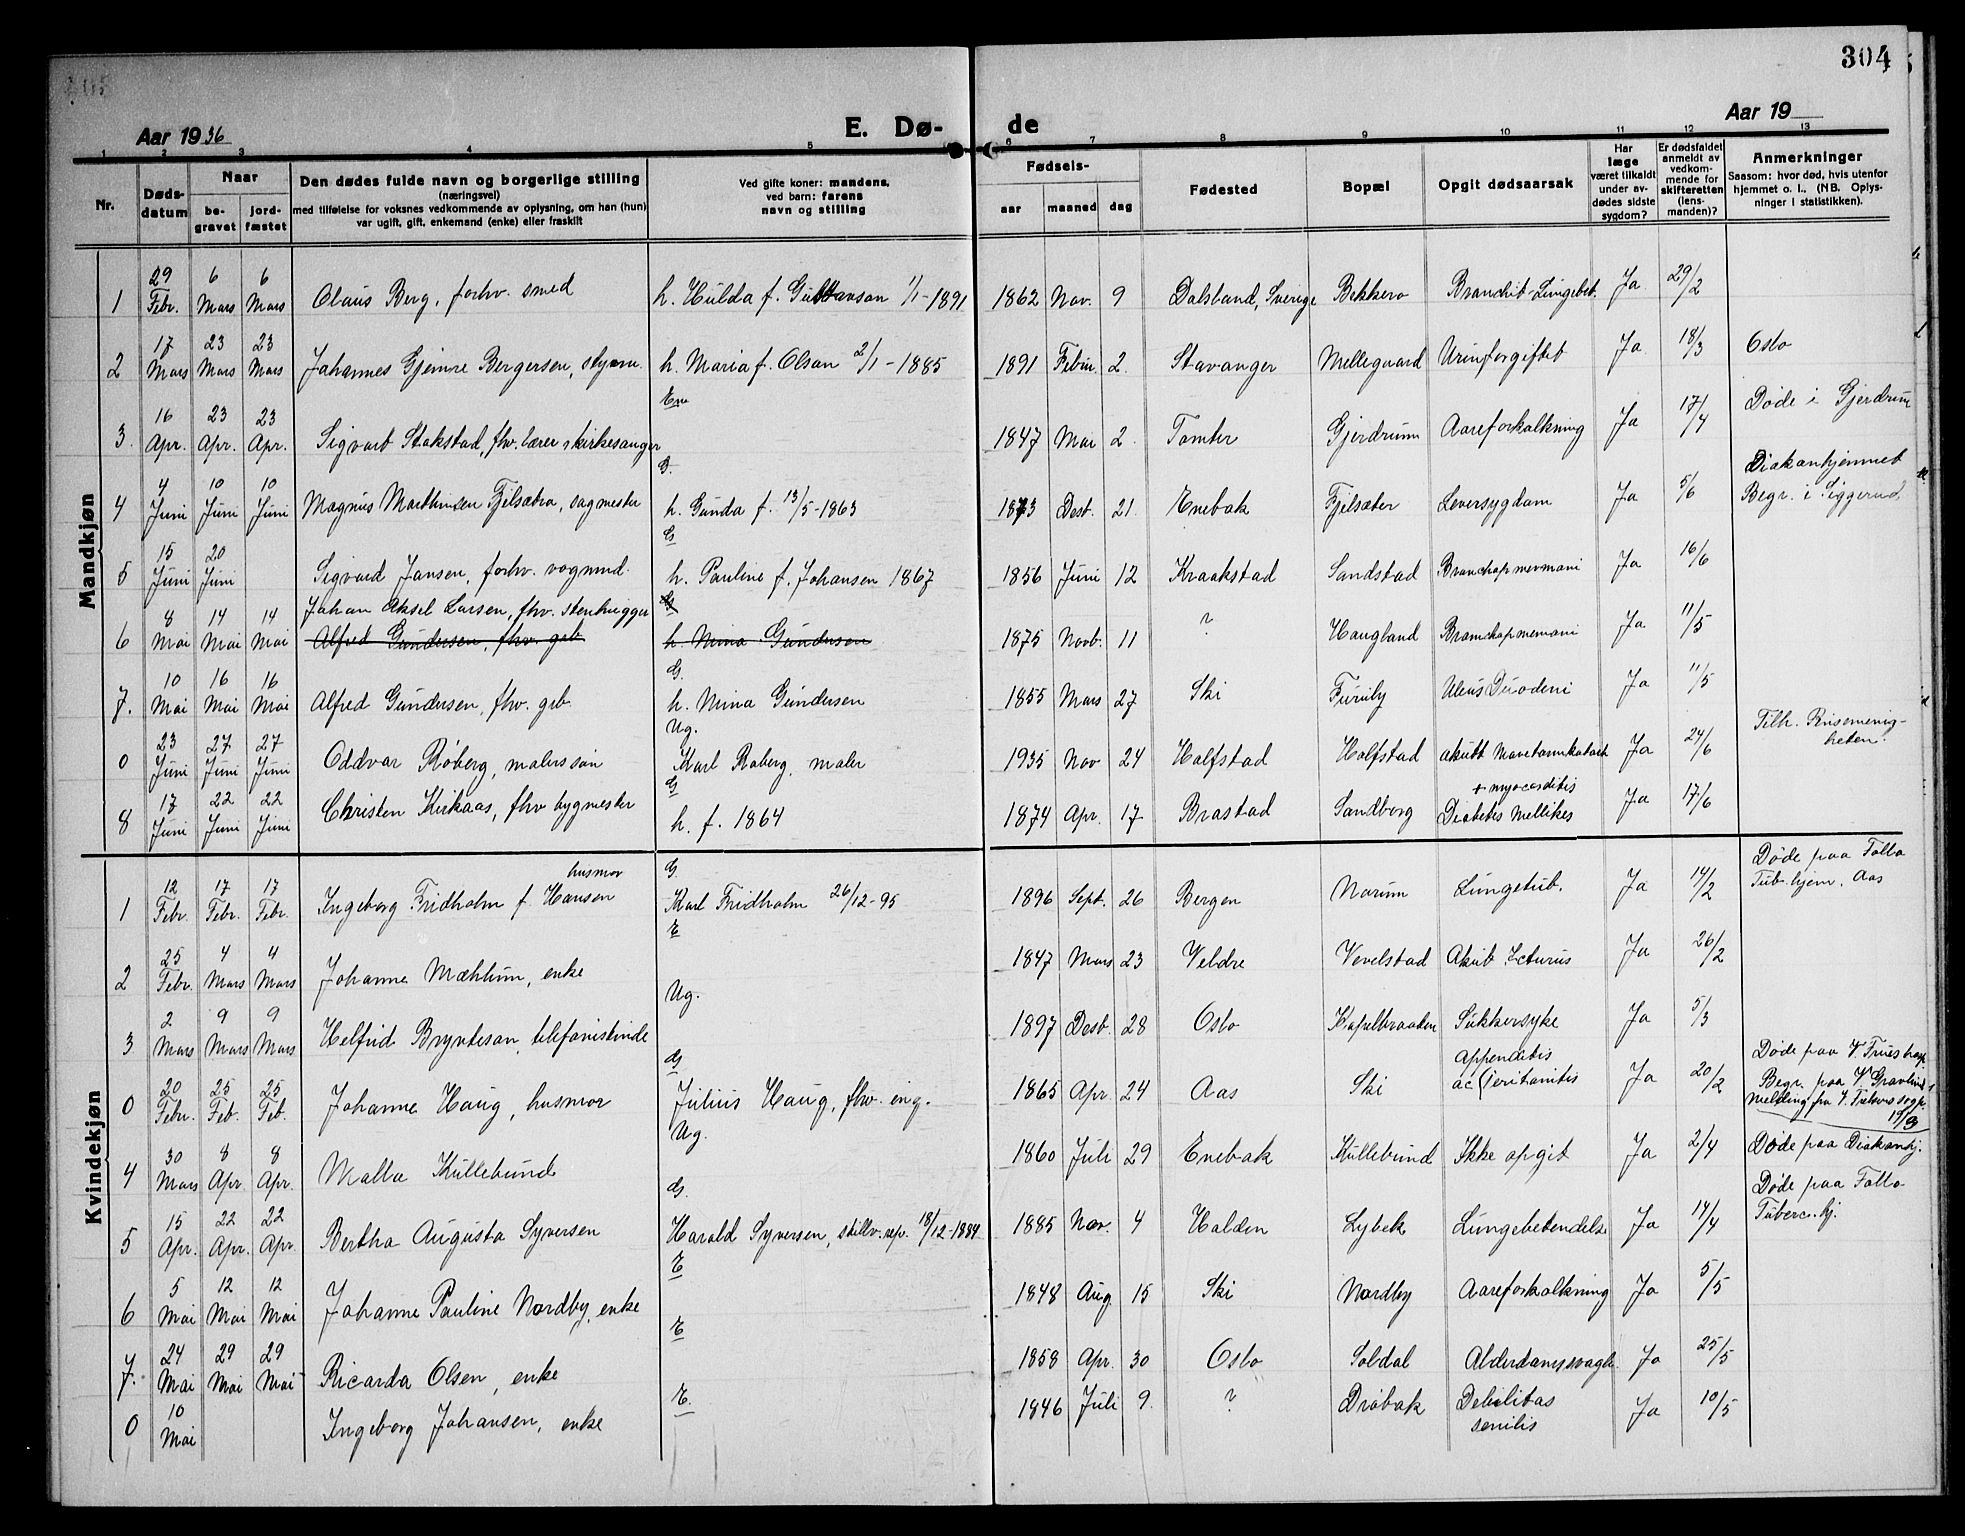 304
Aar 1936
E. Dø-
de
Aar 19
1 2 3 4 5 6 7 8 9 10 11 12 13
Nr.
Døds-
datum
Naar
be-
gravet
jord-
fæstet
Den dødes fulde navn og borgerlige stilling
(næringsvei)
med tilføielse for voksnes vedkommende av oplysning, om han (hun)
var ugift, gift, enkemand (enke) eller fraskilt
Ved gifte koner: mandens,
ved barn: farens
navn og stilling
Fødsels-
aar maaned dag
Fødested
Bopæl
Opgit dødsaarsak
Har
læge
været tilkaldt
under av-
dødes sidste
sygdom?
Er dødsfaldet
anmeldt av
vedkom-
mende for
skifteretten
(lens-
manden)?
Anmerkninger
Saasom: hvor død, hvis utenfor
hjemmet o. l., (NB. Oplys-
ninger i statistikken).
Mandkjøn
1 29 Febr. 6 Mars 6 Mars Olaus Berg, forhv. smed h. Hulda f. Gustavson 1/1-1891 1862 Nov. 9 Dalsland, Sverige Bekkero Bronchit-Lungebet. Ja 29/2
2 17 Mars 23 Mars 23 Mars Johannes Gjemre Bergersen, styrm. h. Maria f. Olson 2/1-1885 1891 Febru. 2 Stavanger Mellegaard Urinforgiftet Ja 18/3 Oslo
Em
3. 16 Apr. 23 Apr. 23 Apr. Sigvart Stokstad, fhv. lærer kirkesanger 1847 Mai 2 Tomter Gjerdrum Aareforkalkning Ja 17/4 Døde i Gjerdrum
G.
4 4 Juni 10 Juni 10 Juni Magnus Marthinsen Fjelsætra, sagmester h. Gunda f. 13/5-1863 1873 Dest. 21 Enebak Fjelsæter Leversygdom Ja 5/6 Diakonhjemmet
Begr. i Siggerud.
G
5 15 Juni 20 Juni Sigvard Jansen, forhv. vognmd. h. Pauline f. Johansen 1867 1856 Juni 12 Kraakstad Sandstad Ja 16/6
6 8 Mai 14 Mai 14 Mai Johan Aksel Larsen, fhv. stenhugger
Alfred Gundersen, fhv. geb. h. Mina Gundersen 1875 Novb. 11 ? Haugland Ja 11/5
G.
7. 10 Mai 16 Mai 16 Mai Alfred Gundersen, fhv. geb. h. Mina Gundersen 1855 Mars 27 Ski Furuly Ulcus Duodeni Ja 11/5
Ug.
0 23 Juni 27 Juni 27 Juni Oddvar Røberg, malerssøn Karl Røberg, maler 1935 Nov 24 Holfstad Holfstad akutt Mavetarmkatarh Ja 24/6 Tilh. Frismenig-
heten.
G
8 17 Juni 22 Juni 22 Juni Christen Kirkaas, fhv bygmester h. f. 1864 1874 Apr. 17 Brastad Sandborg + myocarditis
Diabetes Mellikes Ja 17/6
Kvindekjøn
G
1 12 Febr. 17 Febr. 17 Febr. Ingeborg Fridholm f. Hansen husmor Karl Fridholm 26/12-95 1896 Sept. 26 Bergen Norum Lungetub. Ja 14/2 Døde paa Follo
Tub.hjem, Aas
E
2 25 Febr. 4 Mars 4 Mars Johanne Mæhlum, enke 1847 Mars 23 Veldre Vevelstad Akut Icturus Ja 26/2
Ug.
3 2 Mars 9 Mars 9 Mars Helfrid Bryntesan, telefonistinde 1897 Dest. 28 Oslo Kapelbraaten Sukkersyke Ja 5/3
G
0 20 Febr. 25 Feb. 25 Feb. Johanne Haug, husmor Julius Haug, fhv. eng. 1865 Apr 24 Aas Ski Appenditis
ac Ja 20/2 Døde paa
Begr. paa V. Gravlund
melding fra
19/3
Ug.
4 30 Mars 8 Apr. 8 Apr. Malla Kullebund 1860 Juli 29 Enebak Kullebund Ikke opgit Ja 2/4 Døde paa Diakonhj.
G.
5 15 Apr. 22 Apr. 22 Apr. Bertha Augusta Syversen Harald Syversen, skillv.rep. 18/12-1884 1885 Nov. 4 Halden Lybek Lungebetendelse Ja 14/4 Døde paa Follo
Tuberc.hj.
E
6 5 Mai 12 Mai 12 Mai Johanne Pauline Nordby, enke 1848 Aug. 15 Ski Nordby Aareforkalkning Ja 5/5
E
7. 24 Mai 29 Mai 29 Mai Ricarda Olsen, enke 1858 Apr. 30 Oslo Soldal Alderdomssvagh. Ja 25/5
E.
0 10 Mai Ingeborg Johansen, enke 1846 Juli 9. ? Drøbak Debilitas
senilis Ja 10/5